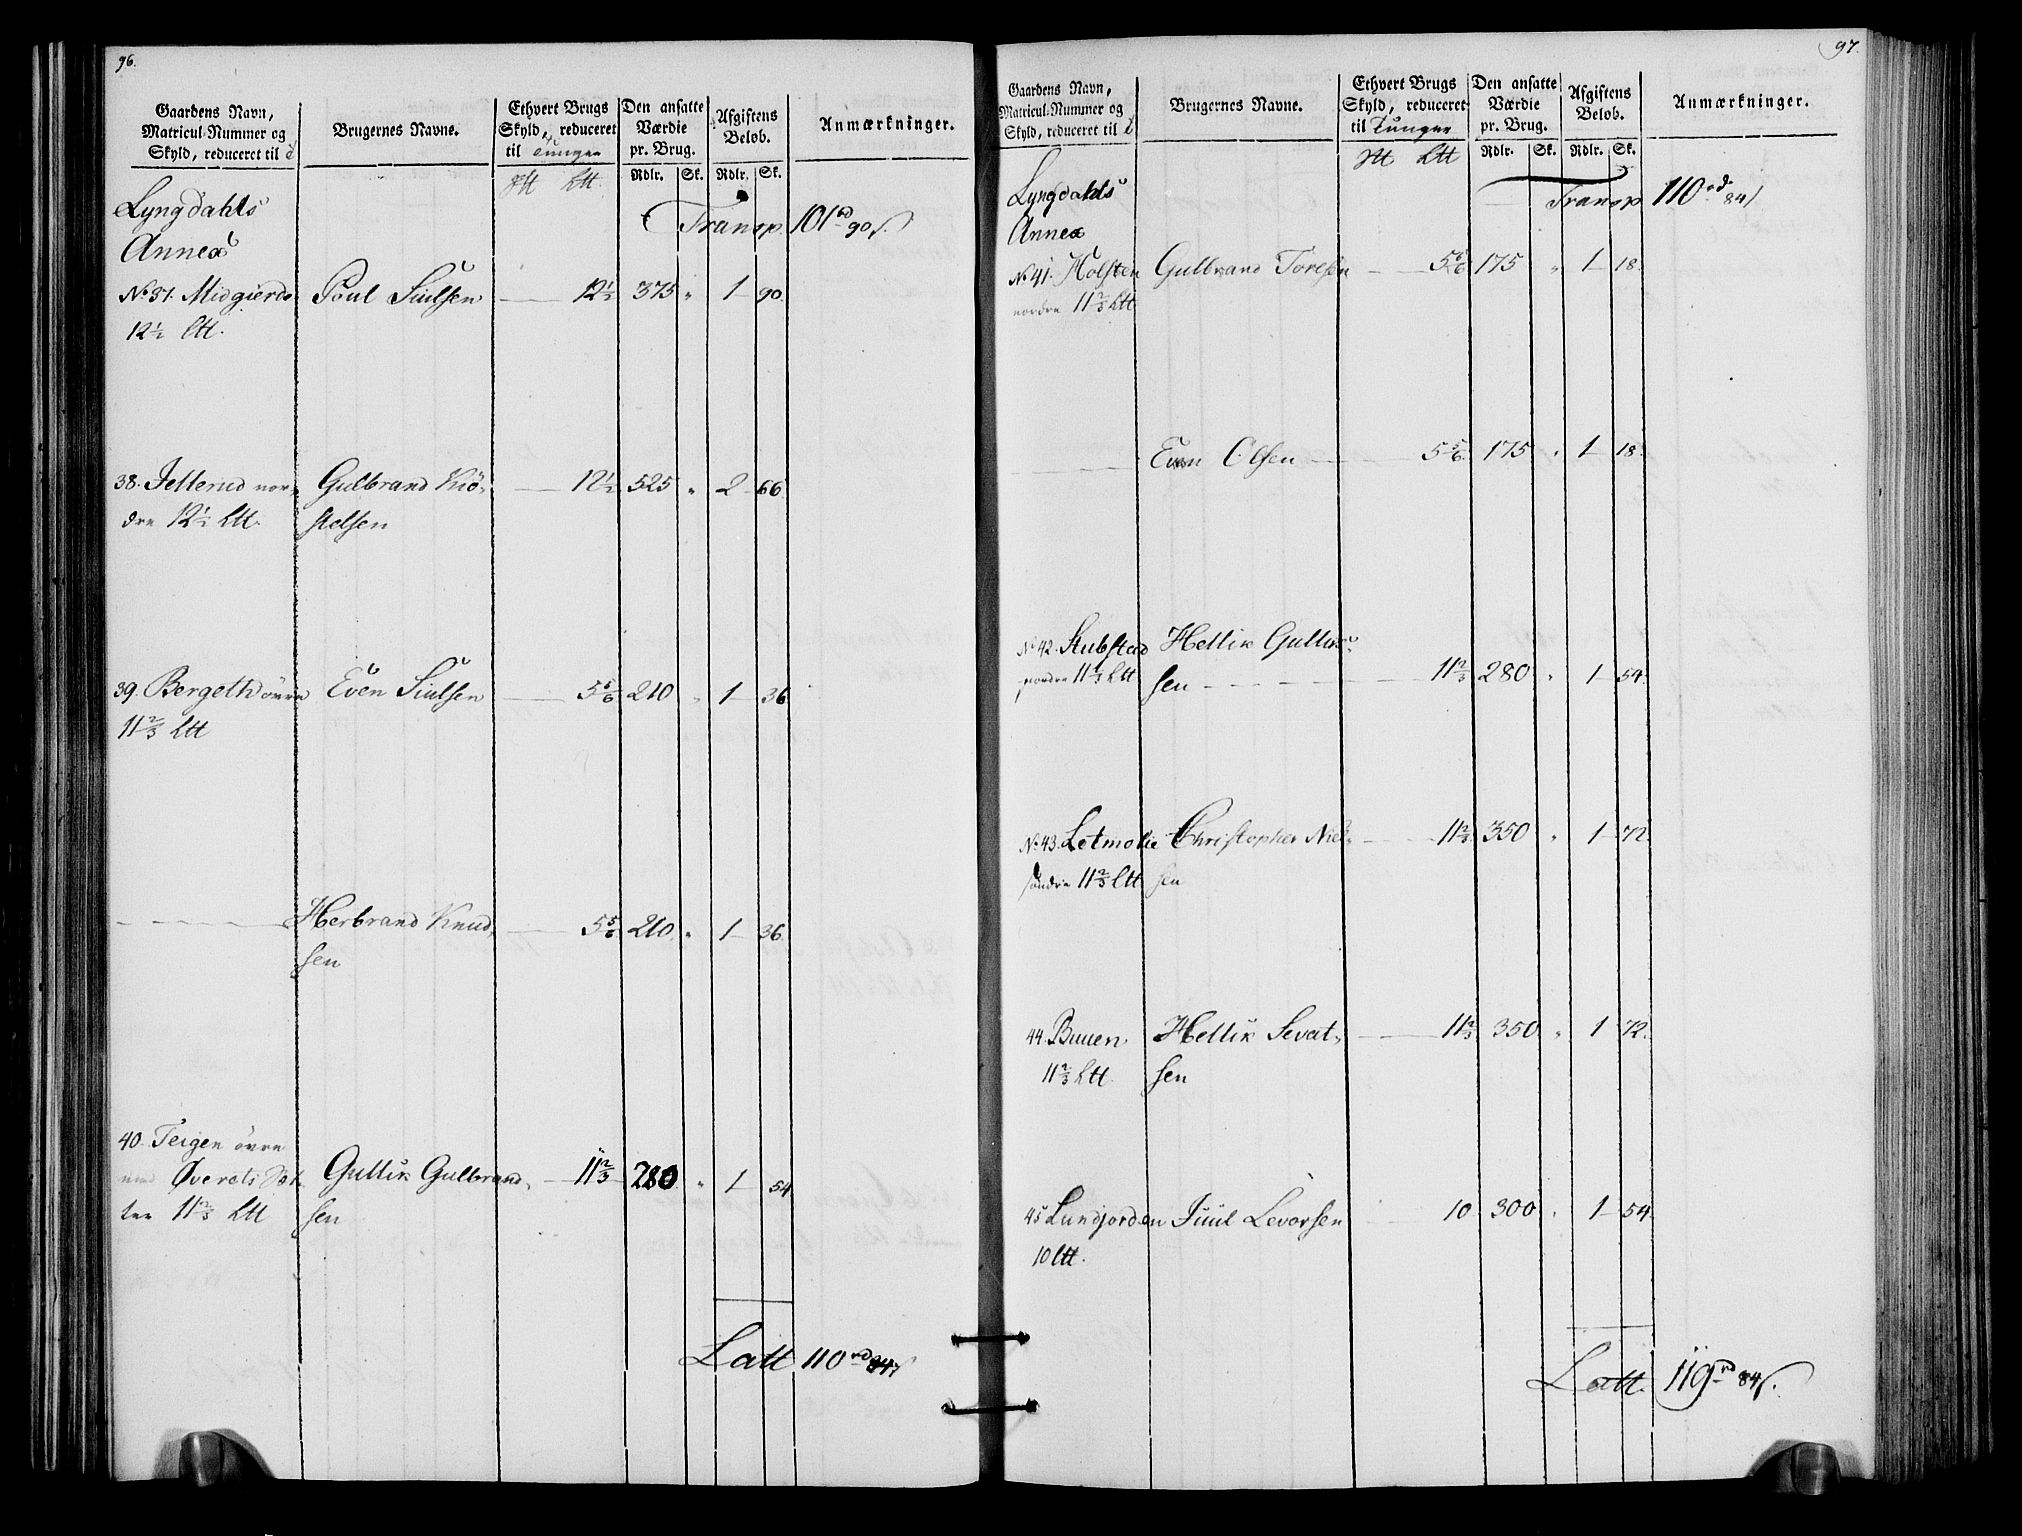 96.
Gaardens Navn, Matricul-Nummer og Skyld, reduceret til
Brugernes Navne.
Ethvert Brugs Skyld, reduceret til Tunger
Den ansatte Værdie pr. Brug.
Afgiftens Beløb.
Anmærkninger.
Rdlr. Sk. Rdlr. Sk.
Lyngdahls
Annex
Transp. 101 rd 90 s.
No. 37. Midgierde Poul Siulsen 12½ 375 " 1 90.
12½ Ltt.
38. Jellerud nor- Gulbrand Kiö- 12½ 525 " 2 66.
dre 12½ Ltt. stelsen
39. Bergeth övre Even Siulsen 5 5/6 210 " 1 36
11⅔ Ltt
Herbrand Knud- 5 5/6 210 " 1 36.
sen
40. Teigen övre
med Øverets
ter 11⅔ Ltt
Gullik Gulbrand- 11⅔ 280 " 1 54
sen
Latt 110 rd 84 s
97.
Gaardens Navn, Matricul-Nummer og Skyld, reduceret til
Brugernes Navne.
Ethvert Brugs Skyld, reduceret til Tunger
Den ansatte Værdie pr. Brug.
Afgiftens Beløb.
Anmærkninger.
Rdlr. Sk. Rdlr. Sk.
Lyngdahls
Annex
Transp 110 rd 84 s
No. 41. Holsten Gulbrand Toresen 5 5/6 175 " 1 18.
nordre 11⅔ Ltt
Even Olsen 5 5/6 175 " 1 18.
No. 42. Stubstad Hellik Gullik-
nordre 11⅔ Ltt sen 11⅔ 280 " 1 54.
No. 43. Letmolie Christopher Niel- 11⅔ 350 " 1 72.
söndre 11⅔ Ltt sen
44. Buuen Hellik Sevat- 11⅔ 350 " 1 72.
11⅔ Ltt. sen
45 Lundjorden Juul Levorsen 10 300 " 1 54.
10 Ltt.
Latt. 119 rd 84 s.